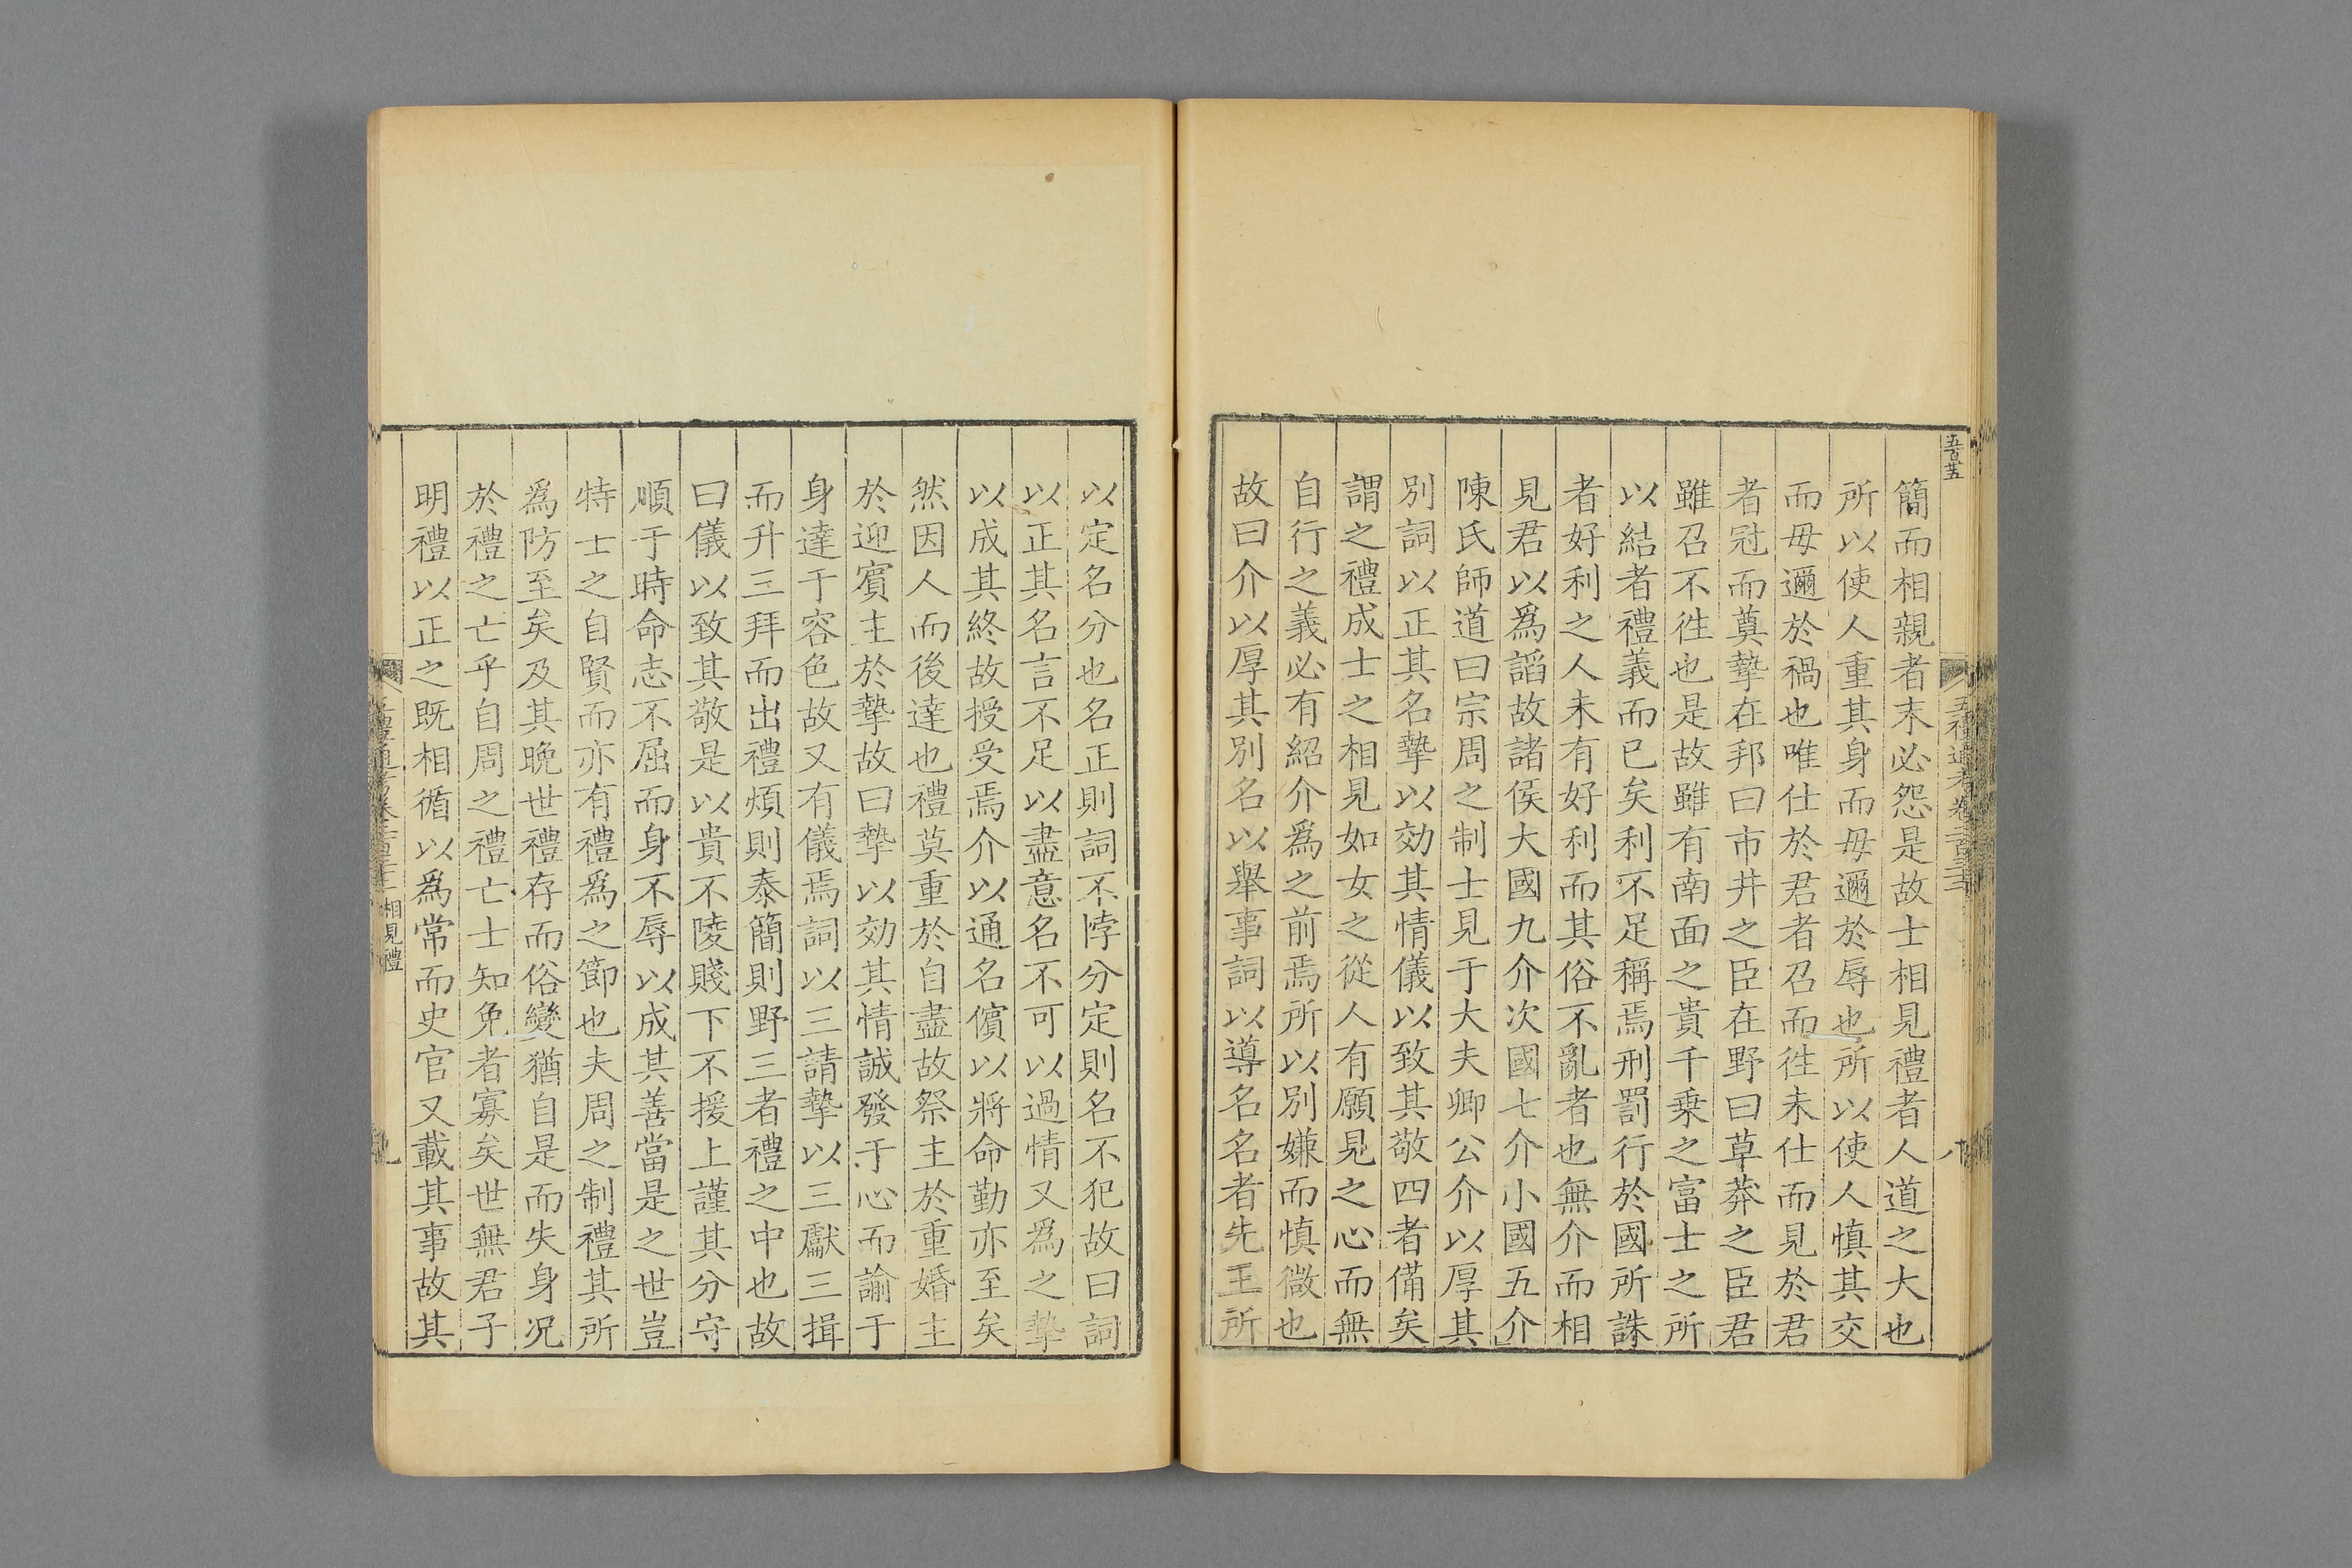 簡而相親者末必怨是故士相見禮者人道之大也
所以使人重其身而毋邇於辱也所以使人慎其交
而毋邇於禍也唯仕於君者召而徃未仕而見於君
者冠而奠摯在邦曰市井之臣在野曰草莽之臣君
雖召不徃也是故雖有南面之貴千乗之富士之所
以結者禮義而已矣利不足稱焉刑罰行於國所誅
者好利之人未有好利而其俗不亂者也無介而相
見君以爲謟故諸侯大國九介次國七介小國五介
陳氏師道曰宗周之制士見于大夫卿公介以厚其
別詞以正其名摯以効其情儀以致其敬四者備矣
謂之禮成士之相見如女之從人有願見之心而無
自行之義必有紹介爲之前焉所以別嫌而慎微也
故曰介以厚其別名以舉事詞以導名名者先王所
以定名分也名正則詞不悖分定則名不犯故曰詞
以正其名言不足以盡意名不可以過情又爲之摯
以成其終故授受焉介以通名儐以將命勤亦至矣
然因人而後達也禮莫重於自盡故祭主於重婚主
於迎賓主於摯故曰摯以効其情誠發于心而諭于
身達于容色故又有儀焉詞以三請摯以三獻三揖
而升三拜而出禮煩則泰簡則野三者禮之中也故
曰儀以致其敬是以貴不陵賤下不援上謹其分守
順于時命志不屈而身不辱以成其善當是之世豈
特士之自賢而亦有禮爲之節也夫周之制禮其所
爲防至矣及其晚世禮存而俗變猶自是而失身况
於禮之亡乎自周之禮亡士知免者寡矣世無君子
明禮以正之既相循以爲常而史官又載其事故其
相見禮